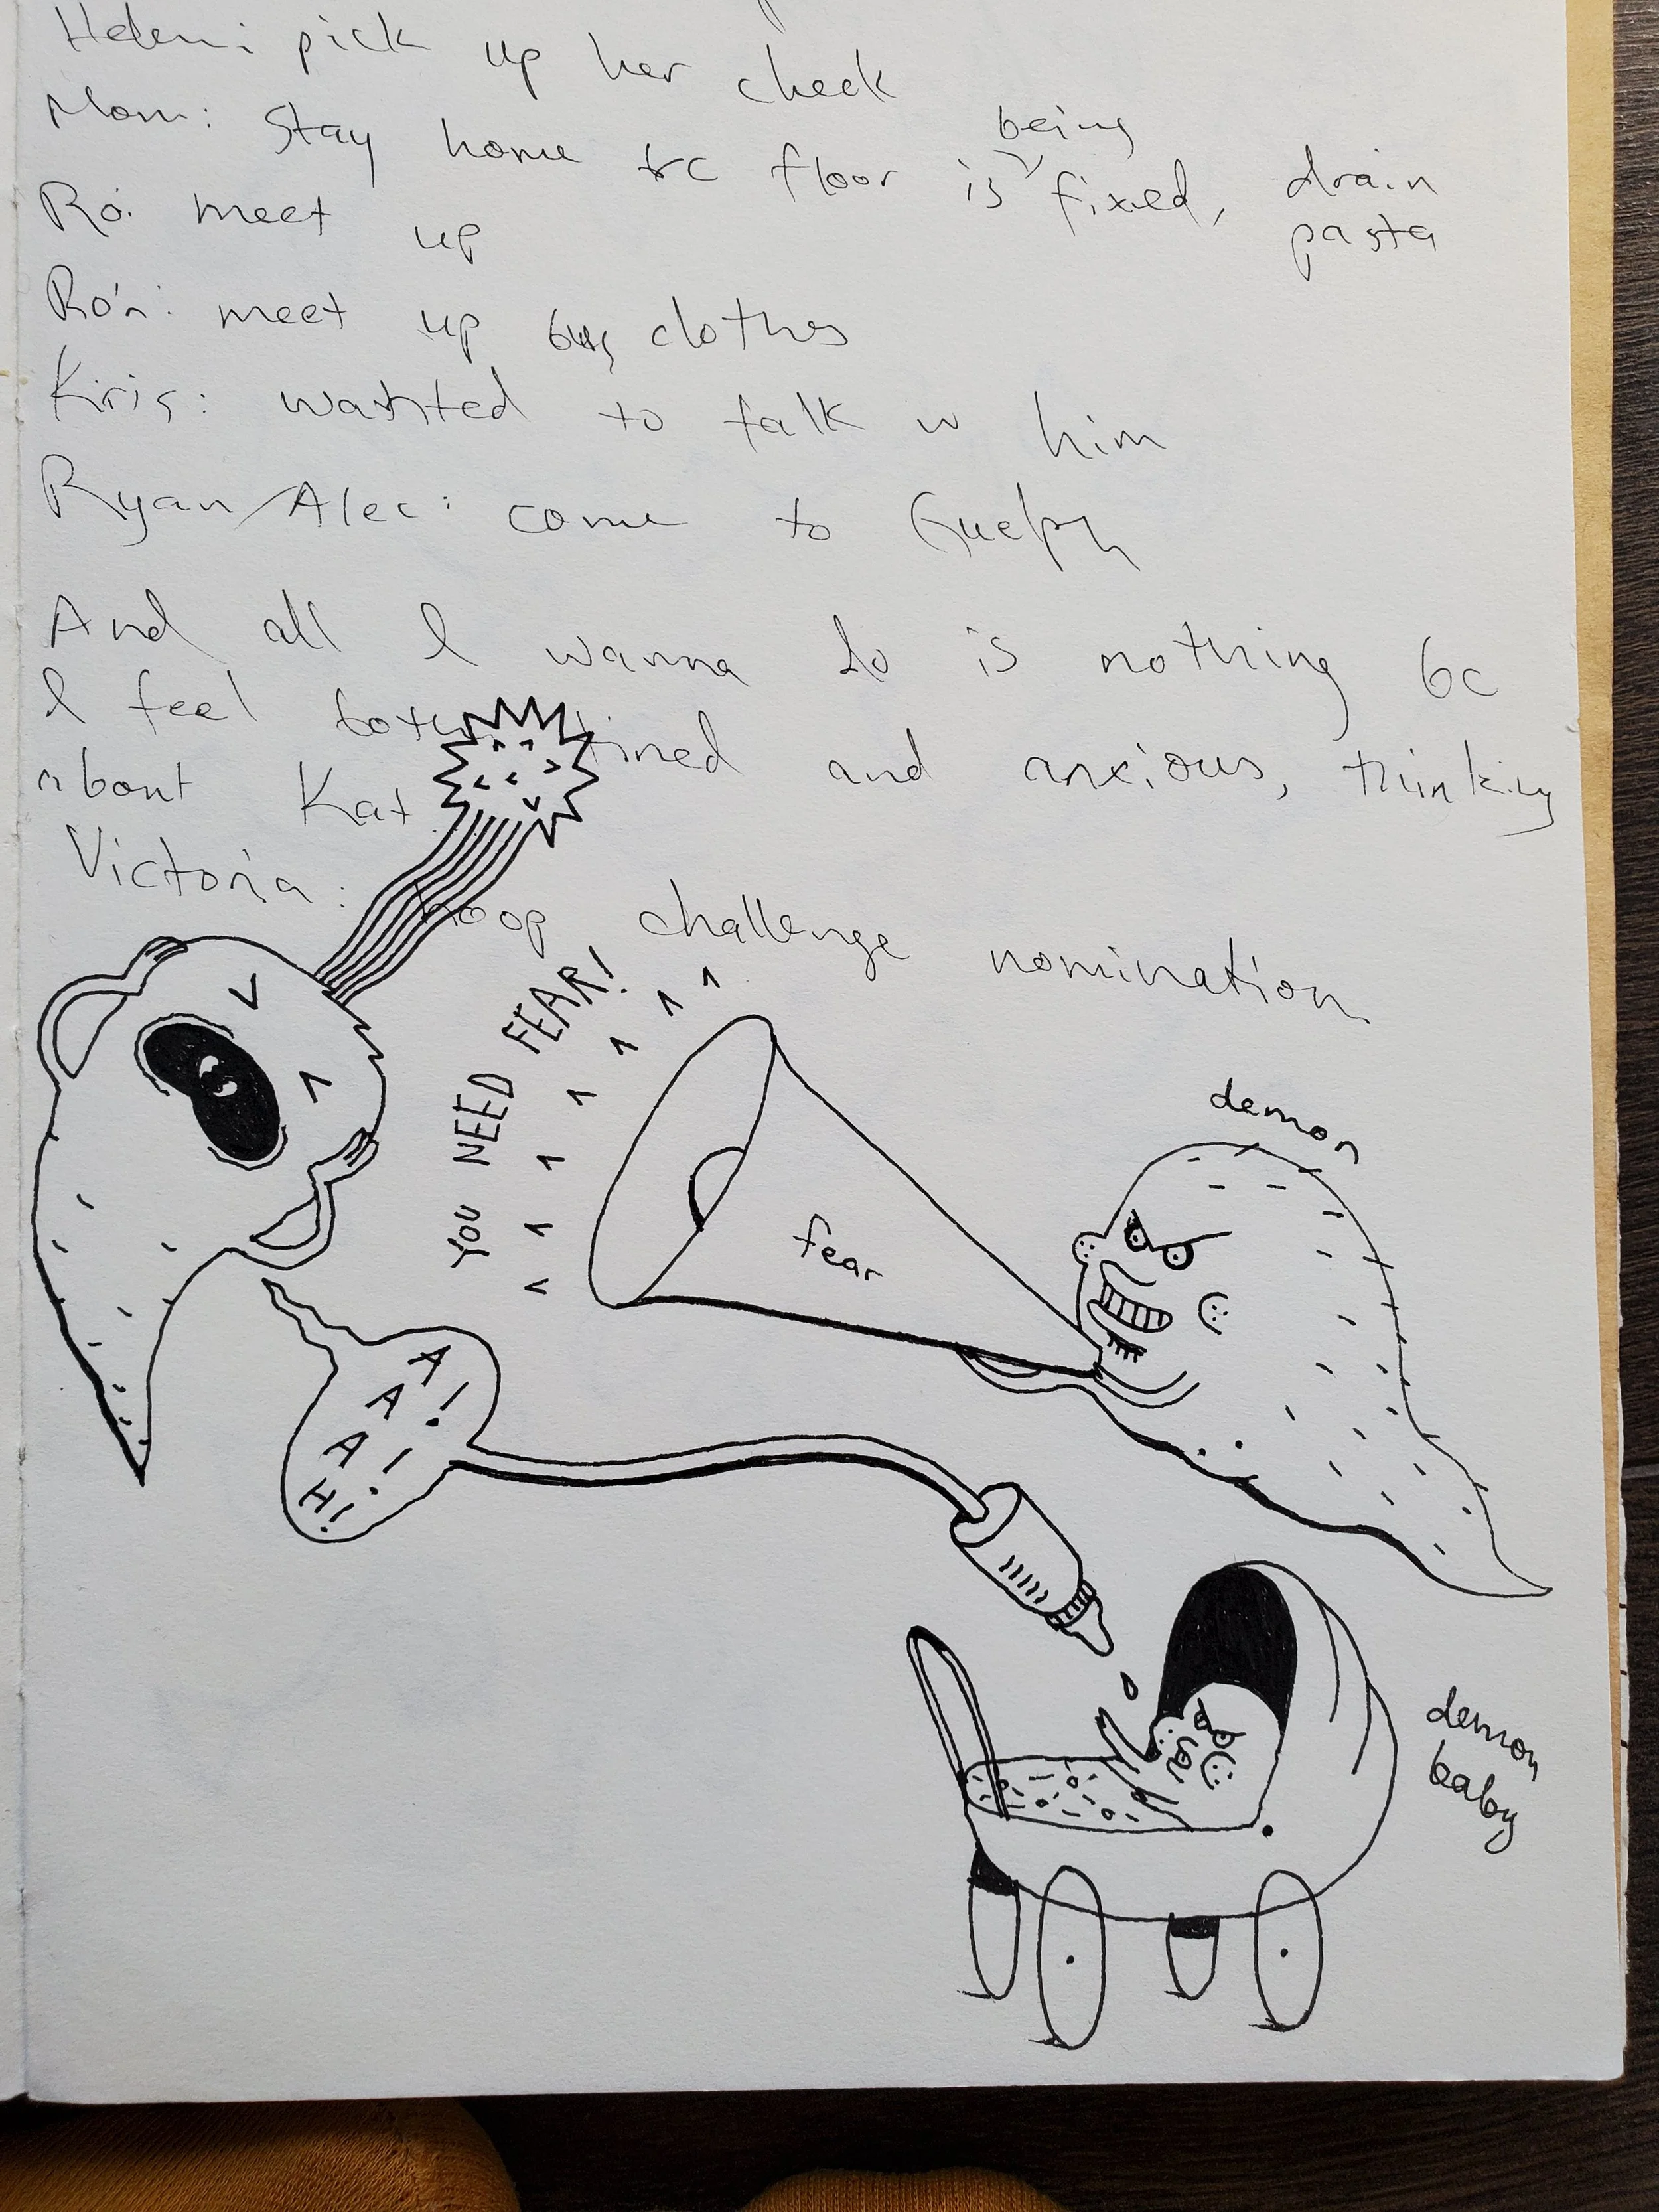 Helen: pick up her check
Mom: Stay home bc floor is being fixed, drain pasta
Ro: meet up
Ro'n: meet up buy clothes
Kiris: wanted to talk w him
Ryan/Alec: come to Guelph
And all I wanna do is nothing bc
I feel both tired and anxious, thinking
about Kat.
Victoria: hoop challenge nomination.
YOU NEED FEAR!
demon
fear
A
A!
A!
H!
demon
baby